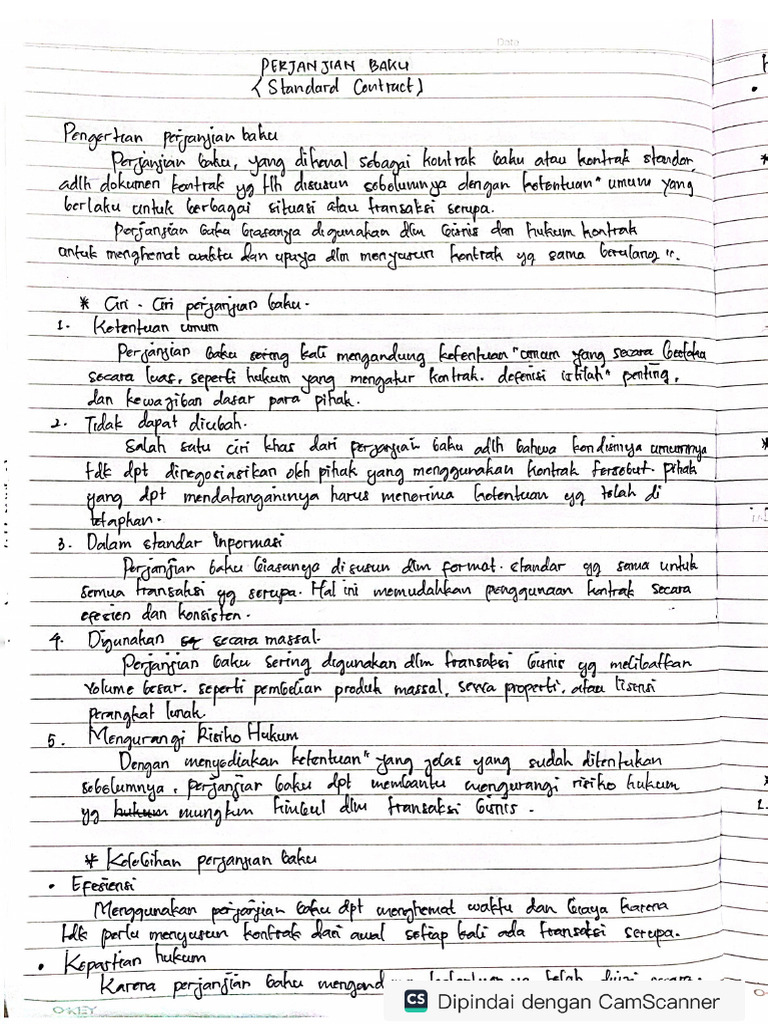 Date
PERJANJIAN BAKU
(Standard Contract)
Pengertian perjanjian baku
Perjanjian baku, yang dikenal sebagai kontrak baku atau kontrak standar,
adlh dokumen kontrak yg tlh disusun sebelumnya dengan ketentuan" umum yang
berlaku untuk berbagai situasi atau transaksi serupa.
Perjanjian baku biasanya digunakan dlm bisnis dan hukum kontrak
untuk menghemat waktu dan upaya dlm menyusun kontrak yg sama berulang".
* Ciri - Ciri perjanjian baku.
1. Ketentuan umum
Perjanjian baku sering kali mengandung ketentuan" umum yang secara berlaku
secara luas, seperti hukum yang mengatur kontrak. defenisi istilah" penting,
dan kewajiban dasar para pihak.
2. Tidak dapat diubah.
Salah satu ciri khas dari perjanjian baku adlh bahwa kondisinya umumnya
tdk dpt dinegosiasikan oleh pihak yang menggunakan kontrak tersebut. pihak
yang dpt mendatanganinya harus menerima ketentuan yg telah di
tetapkan.
3. Dalam standar informasi
Perjanjian baku biasanya disusun dlm format. standar yg sama untuk
semua transaksi yg serupa. Hal ini memudahkan penggunaan kontrak secara
efesien dan konsisten.
4. Digunakan secara massal.
Perjanjian baku sering digunakan dlm transaksi bisnis yg melibatkan
volume besar. seperti pembelian produk massal, sewa properti, atau lisensi
perangkat lunak.
5. Mengurangi Risiko Hukum
Dengan menyediakan ketentuan" yang jelas yang sudah ditentukan
sebelumnya, perjanjian baku dpt membantu mengurangi risiko hukum
yg hukum mungkin timbul dlm transaksi bisnis.
* Kelebihan perjanjian baku
• Efesiensi
Menggunakan perjanjian baku dpt menghemat waktu dan biaya karena
tdk perlu menyusun kontrak dari awal setiap kali ada transaksi serupa.
• Kepastian hukum
Karena perjanjian baku
O-KEY
CS Dipindai dengan CamScanner